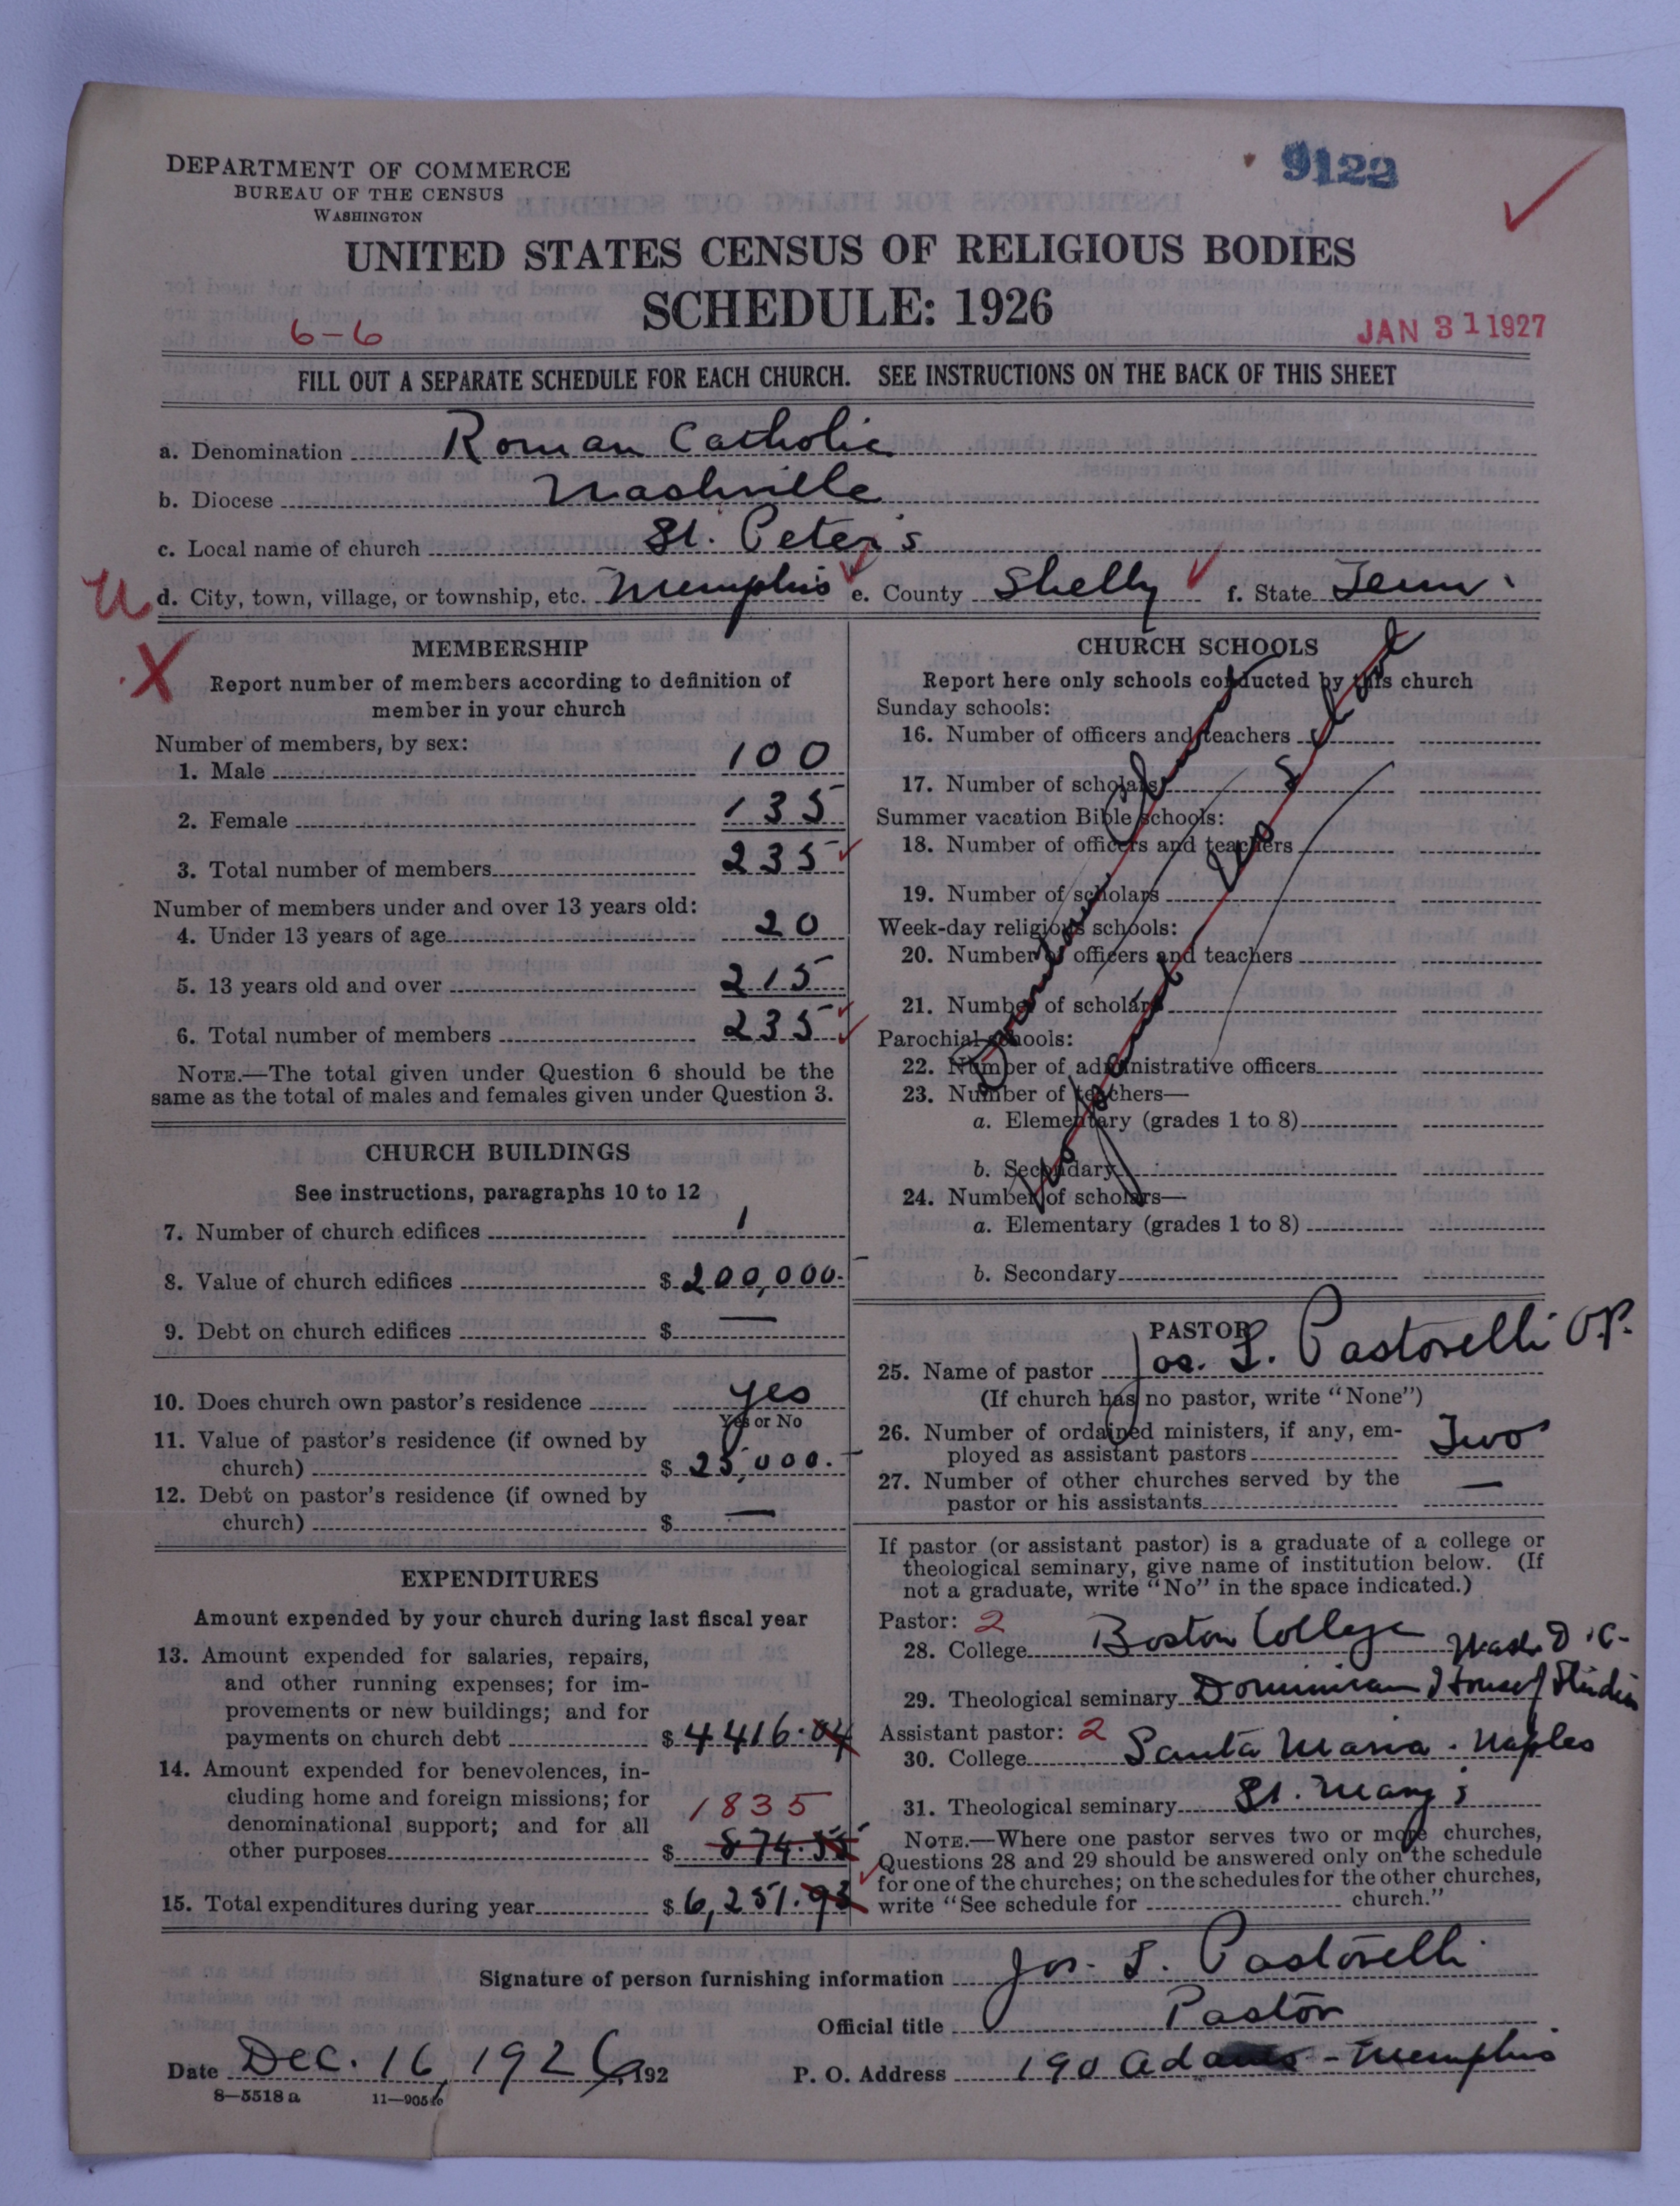 DEPARTMENT OF COMMERCE
BUREAU OF THE CENSUS
WASHINGTON
9122
UNITED STATES CENSUS OF RELIGIOUS BODIES
SCHEDULE: 1926
6-6
JAN 31 1927
FILL OUT A SEPARATE SCHEDULE FOR EACH CHURCH. SEE INSTRUCTIONS ON THE BACK OF THIS SHEET
a. Denomination Roman Catholic
b. Diocese Nashville
c. Local name of church St. Peter's
d. City, town, village, or township, etc. Memphis e. County Shelby f. State Tenn.
MEMBERSHIP
Report number of members according to definition of
member in your church
Number of members, by sex:
1. Male 100
2. Female 135
3. Total number of members 235
Number of members under and over 13 years old:
4. Under 13 years of age 20
5. 13 years old and over 215
6. Total number of members 235
NOTE.—The total given under Question 6 should be the
same as the total of males and females given under Question 3.
CHURCH BUILDINGS
See instructions, paragraphs 10 to 12
7. Number of church edifices 1
8. Value of church edifices $200,000.
9. Debt on church edifices $ —
10. Does church own pastor's residence yes
Yes or No
11. Value of pastor's residence (if owned by
church) $ 25,000.
12. Debt on pastor's residence (if owned by
church) $ —
EXPENDITURES
Amount expended by your church during last fiscal year
13. Amount expended for salaries, repairs,
and other running expenses; for im-
provements or new buildings; and for
payments on church debt $4416.04
14. Amount expended for benevolences, in-
cluding home and foreign missions; for
denominational support; and for all
1835
other purposes $ 874.55
15. Total expenditures during year $6,251.93
CHURCH SCHOOLS
Report here only schools conducted by this church
Sunday schools:
16. Number of officers and teachers
17. Number of scholars
Summer vacation Bible schools:
18. Number of officers and teachers
19. Number of scholars
Week-day religious schools:
20. Number of officers and teachers
21. Number of scholars
Parochial schools:
22. Number of administrative officers
23. Number of teachers—
a. Elementary (grades 1 to 8)
b. Secondary
24. Number of scholars—
a. Elementary (grades 1 to 8)
b. Secondary
Church
school
PASTOR
25. Name of pastor Jos. L. Pastorelli O.P.
(If church has no pastor, write "None")
26. Number of ordained ministers, if any, em-
ployed as assistant pastors Two
27. Number of other churches served by the
pastor or his assistants —
If pastor (or assistant pastor) is a graduate of a college or
theological seminary, give name of institution below. (If
not a graduate, write "No" in the space indicated.)
Pastor: 2
28. College Boston College
Wash. D.C.
29. Theological seminary Dominican House of Studies
Assistant pastor: 2
30. College Santa Maria - Naples
31. Theological seminary St. Mary's
NOTE.—Where one pastor serves two or more churches,
Questions 28 and 29 should be answered only on the schedule
for one of the churches; on the schedules for the other churches,
write "See schedule for church."
Signature of person furnishing information Jos. L. Pastorelli
Official title Pastor
Date Dec. 16, 1926, 192
P. O. Address 190 Adams - Memphis
8—5518 a